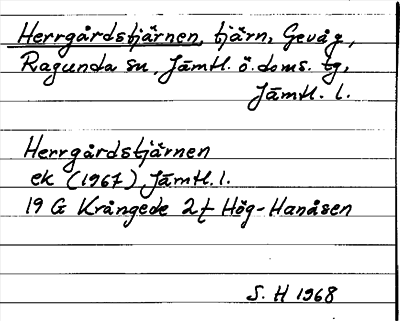 Herrgårdstjärnen, tjärn, Gevåg,
Ragunda sn. Jämtl. ö. doms. tg,
Jämtl. l.
Herrgårdstjärnen
ek (1967) Jämtl. l.
19 G Krångede 2f Hög-Hanåsen
S. H 1968